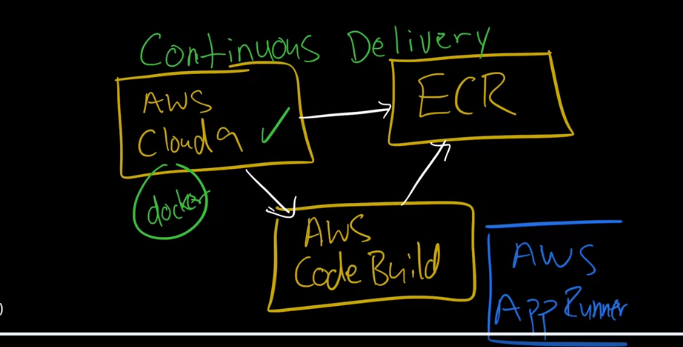 Continuous Delivery
AWS
Cloud9
docker
ECR
AWS
Code Build
AWS
App Runner
)